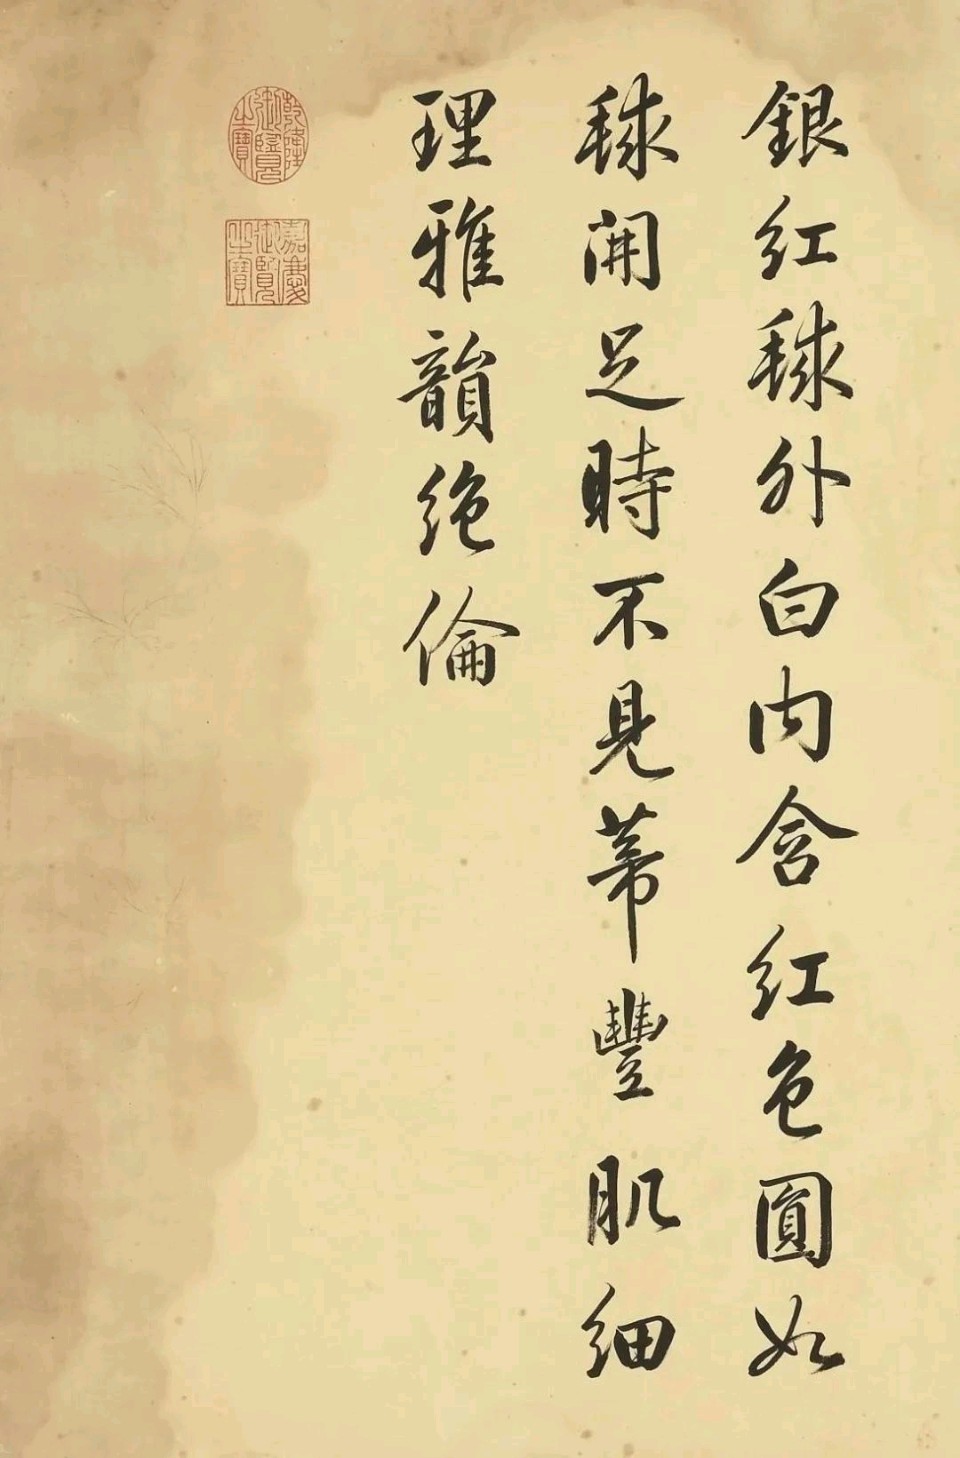 銀紅毬外白内含紅色圓如
毬開足時不見蒂豐肌細
理雅韻絶倫
乾隆御覽之寶
嘉慶御覽之寶